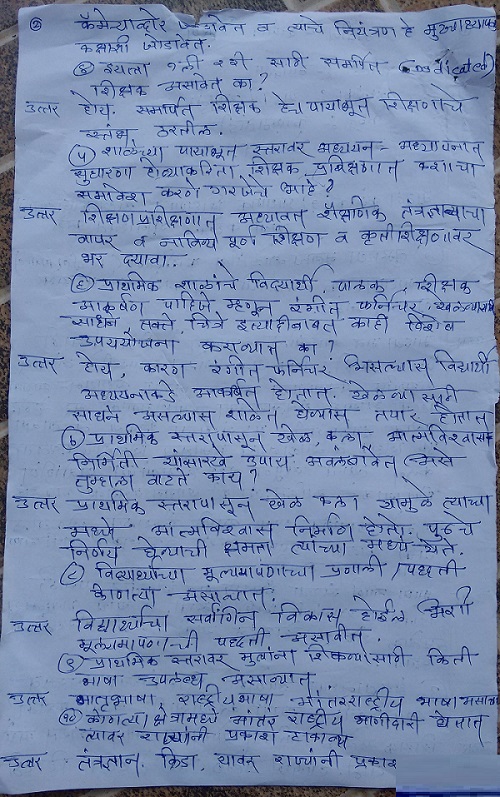 कॅमेऱ्याव्दारे व त्याचे नियंत्रण हे मुख्याध्यापक
कक्षाशी जोडावेत.
④ इयत्ता १ली २री साठी समर्पित (Dedicated)
शिक्षक असावेत का?
उत्तर होय. समर्पित शिक्षक हे पायाभूत शिक्षणाचे
स्तंभ ठरतील.
५ शाळेच्या पायाभूत स्तरावर अध्ययन- अध्यापनात
सुधारणा होण्याकरिता शिक्षक प्रशिक्षणात कशाचा
समावेश करणे गरजेचे आहे?
उत्तर शिक्षण प्रशिक्षणात अद्यावत शैक्षणिक तंत्रज्ञानाचा
वापर व नाविन्य पूर्ण शिक्षण व कृतीशिक्षणावर
भर द्यावा.
६ प्राथमिक शाळांचे विद्यार्थी पालक, शिक्षक
आकर्षण पाहिजे म्हणून रंगीत फर्निचर, खेळण्याची
साधने तक्ते चित्रे इत्यादीबाबत काही विशेष
उपययोजना कराव्यात का?
उत्तर होय, कारण रंगीत फर्निचर असल्यास विद्यार्थी
अध्ययनाकडे आकर्षित होतात. खेळण्या साठी
साधने असल्यास शाळेत येण्यास तयार होतात
७ प्राथमिक स्तरापासून खेळ, कला, आत्मविश्वास
निर्मिती यांसारखे उपाय अवलंबावेत असे
तुम्हाला वाटते काय?
उत्तर प्राथमिक स्तरापासून खेळ कला यामुळे त्याचा
मध्ये आत्मविश्वास निर्माण होतो. पुढचे
निर्णय घेण्याची क्षमता त्यांच्या मध्ये येते.
८ विद्यार्थ्यांच्या मूल्यमापणाच्या प्रणाली / पध्दती
कोणत्या असाव्यात.
उत्तर विद्यार्थ्यांचा सर्वांगिन विकास होईल अशी
मूल्यमापणाची पध्दती असावीत.
९ प्राथमिक स्तरावर मुलांना शिकण्यासाठी किती
भाषा उपलब्ध असाव्यात
उत्तर मातृभाषा, राष्ट्रीयभाषा आंतरराष्ट्रीय भाषा असाव्यात
१० कोणत्या क्षेत्रामध्ये आंतर राष्ट्रीय भागीदारी घेतात
त्यावर राज्यांनी प्रकाश टाकावा
उत्तर तंत्रज्ञान, क्रिडा, यावर राज्यांनी प्रकाश